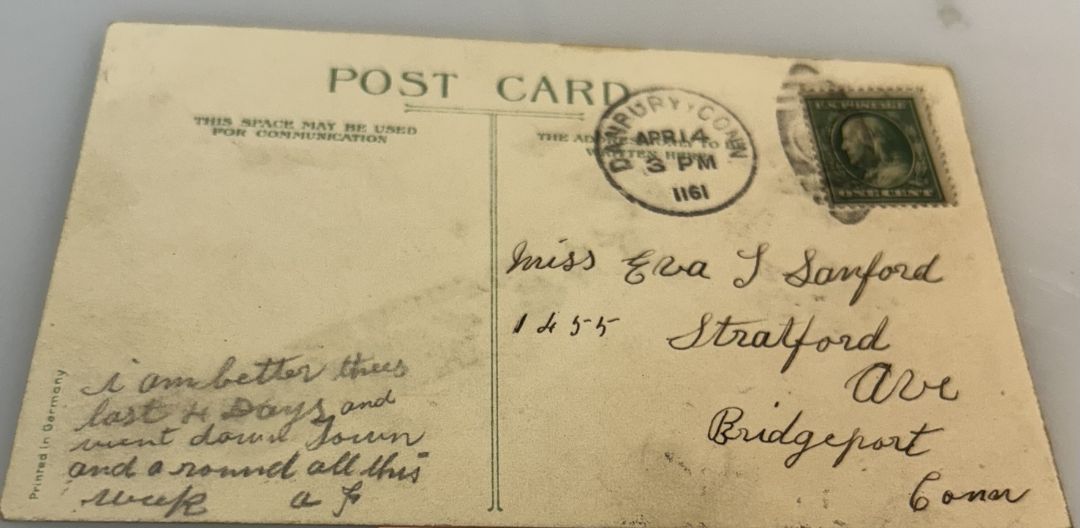 POST CARD
THIS SPACE MAY BE USED
FOR COMMUNICATION
THE
DANBURY, CONN
APR 14
3 PM
1161
U.S. POSTAGE
Miss Eva S Sanford
1455 Stratford
Ave
Bridgeport
Conn
i am better thees
last 4 Days and
went down town
and a round all this
week a F
Printed in Germany